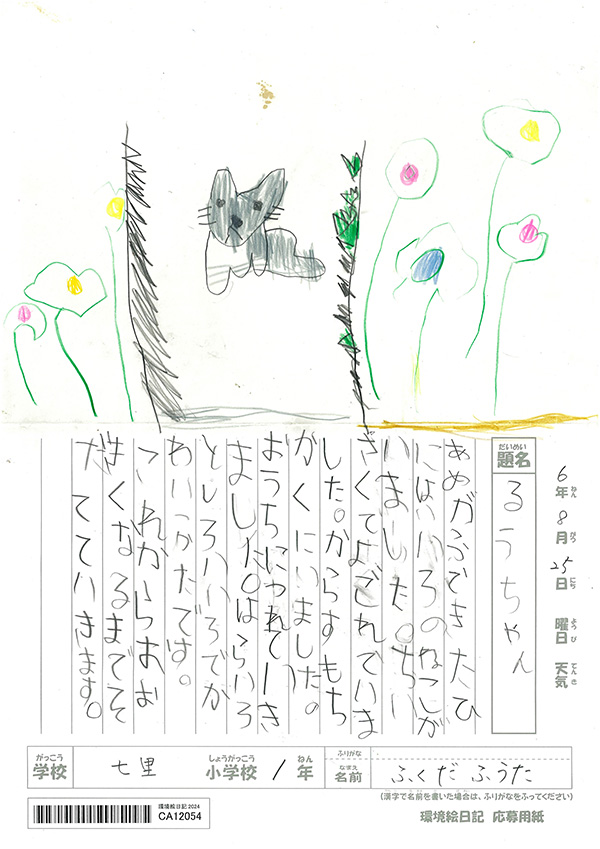 6年 8月 25日 曜日 天気
ねん がつ にち ようび てんき
だいめい
題名
るうちゃん
あめがふてきたひ
にはいいろのねこが
いました。ちい
さくてよごれていま
した。からすもち
かくにいました。
おうちにつれていき
ました。はらいろ
としろいいろでか
わいいかたです。
これからおお
きくなるまでそ
だてていきます。
がっこう
学校 七里
しょうがっこう ねん
小学校 1年
ふりがな
なまえ
名前 ふくだ ふうた
(漢字で名前を書いた場合は、ふりがなをふってください)
環境絵日記2024
CA12054
環境絵日記 応募用紙